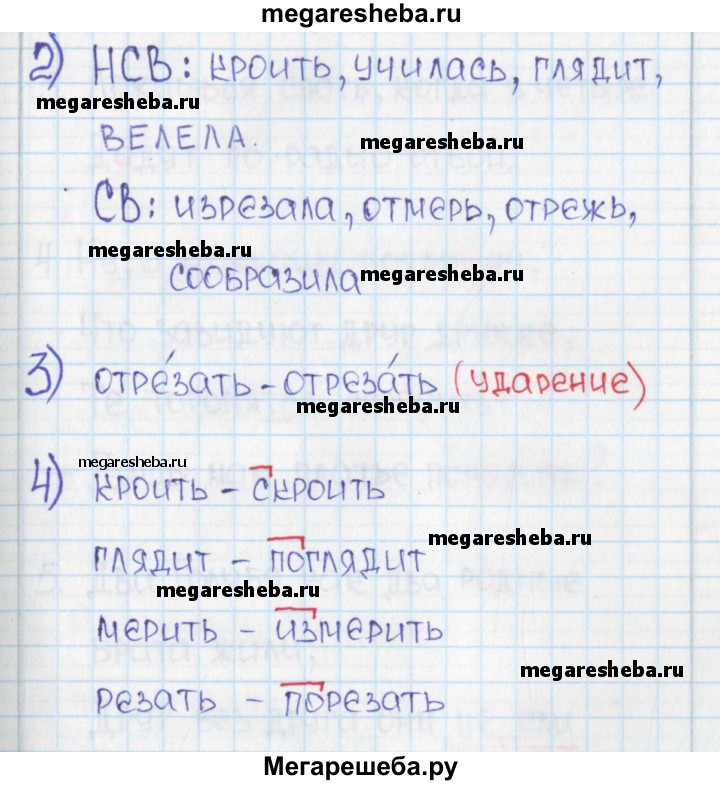 megaresheba.ru
2) НСВ: кроить, училась, глядит,
megaresheba.ru
megaresheba.ru
велела.
СВ: изрезала, отмерь, отрежь,
megaresheba.ru
сообразила megaresheba.ru
3) отре́зать - отреза́ть (ударение)
megaresheba.ru
megaresheba.ru
4) кроить - скроить
megaresheba.ru
глядит - поглядит
megaresheba.ru
мерить - измерить
megaresheba.ru
резать - порезать
Мегарешеба.ру